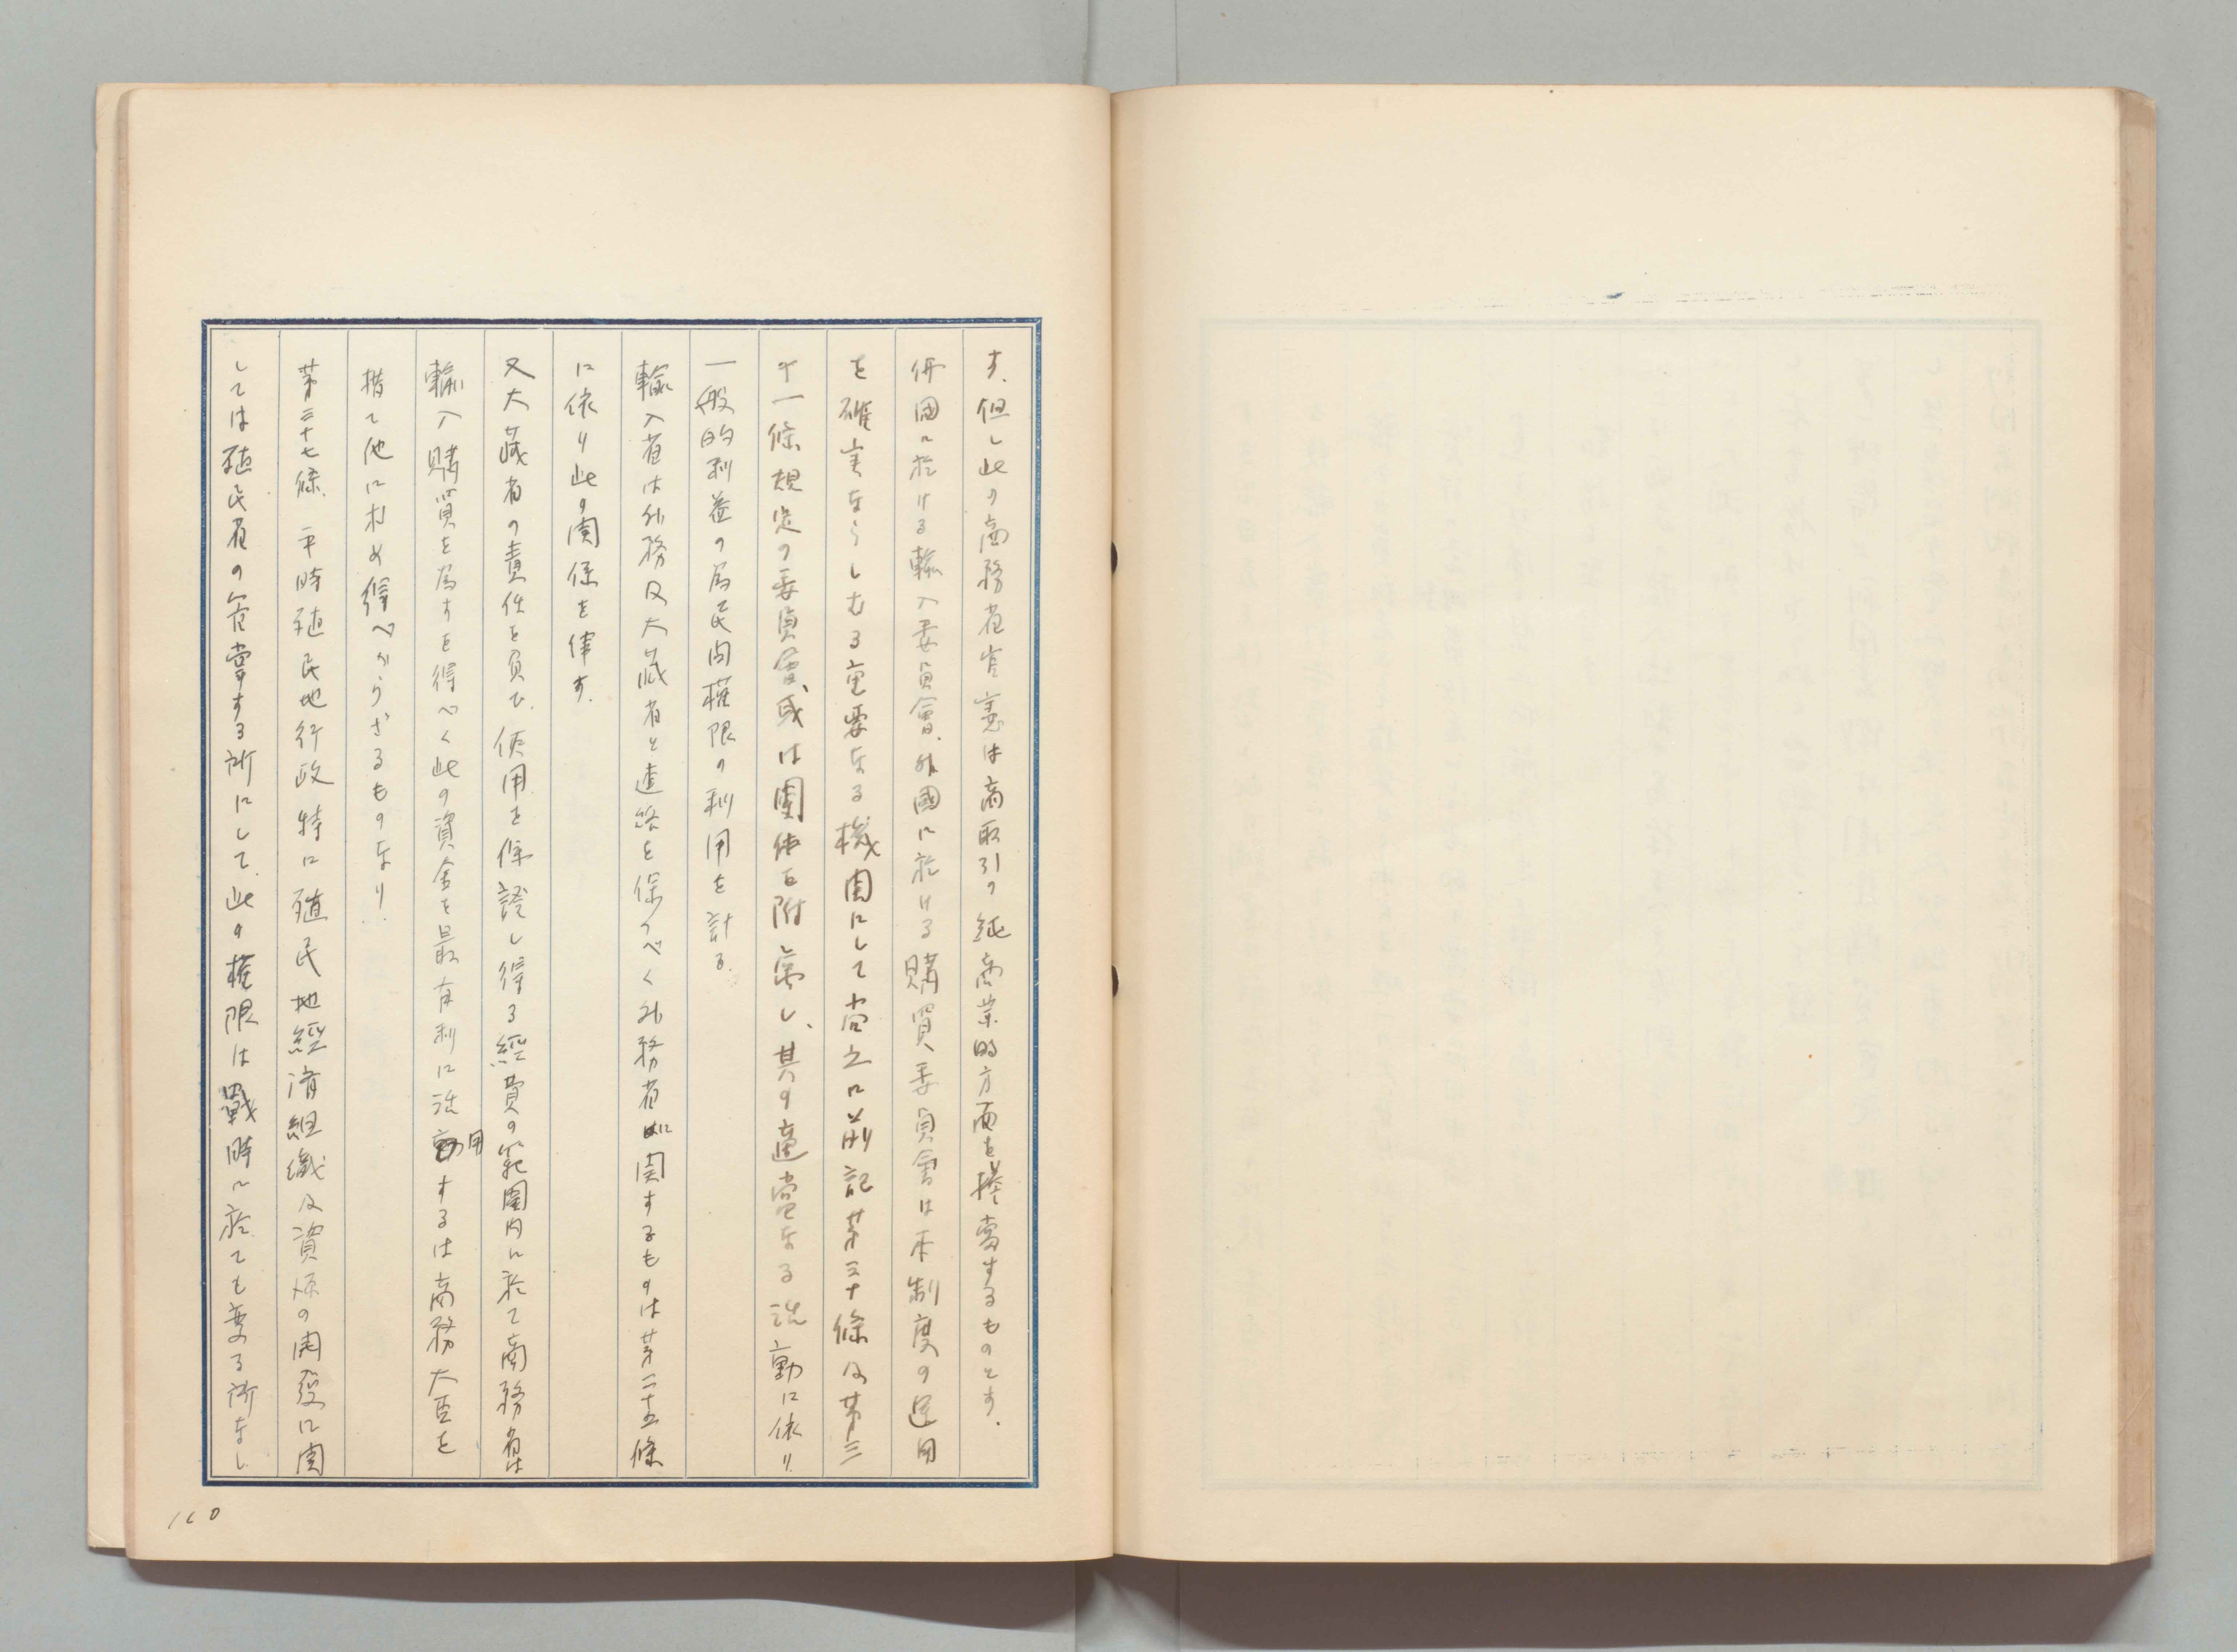 す。但し此の商務省官憲は商取引の純商業的方面を擔當するものとす.
佛國に於ける輸入委員會、外國に於ける購買委員會は本制度の運用
を確実ならしむる重要なる機関にして尚之に前記第三十條及第三
十一條規定の委員會、或は團体を附帯し、其の適當なる活動に依り
一般的利益の為民間權限の利用を計る.
輸入省は外務及大蔵省と連絡を保つべく外務省に関するものは第二十五條
に依り此の関係を律す.
又大蔵省の責任を負ひ、使用を保證し得る經費の範圍内に於て商務省は
輸入購買を為すを得べく此の資金を最有利に活用するは商務大臣を
措て他に求め得べからざるものなり.
第三十七條、平時殖民地行政特に殖民地經済組織及資源の開發に関
しては殖民省の管掌する所にして、此の權限は戰時に於ても変る所なし
160